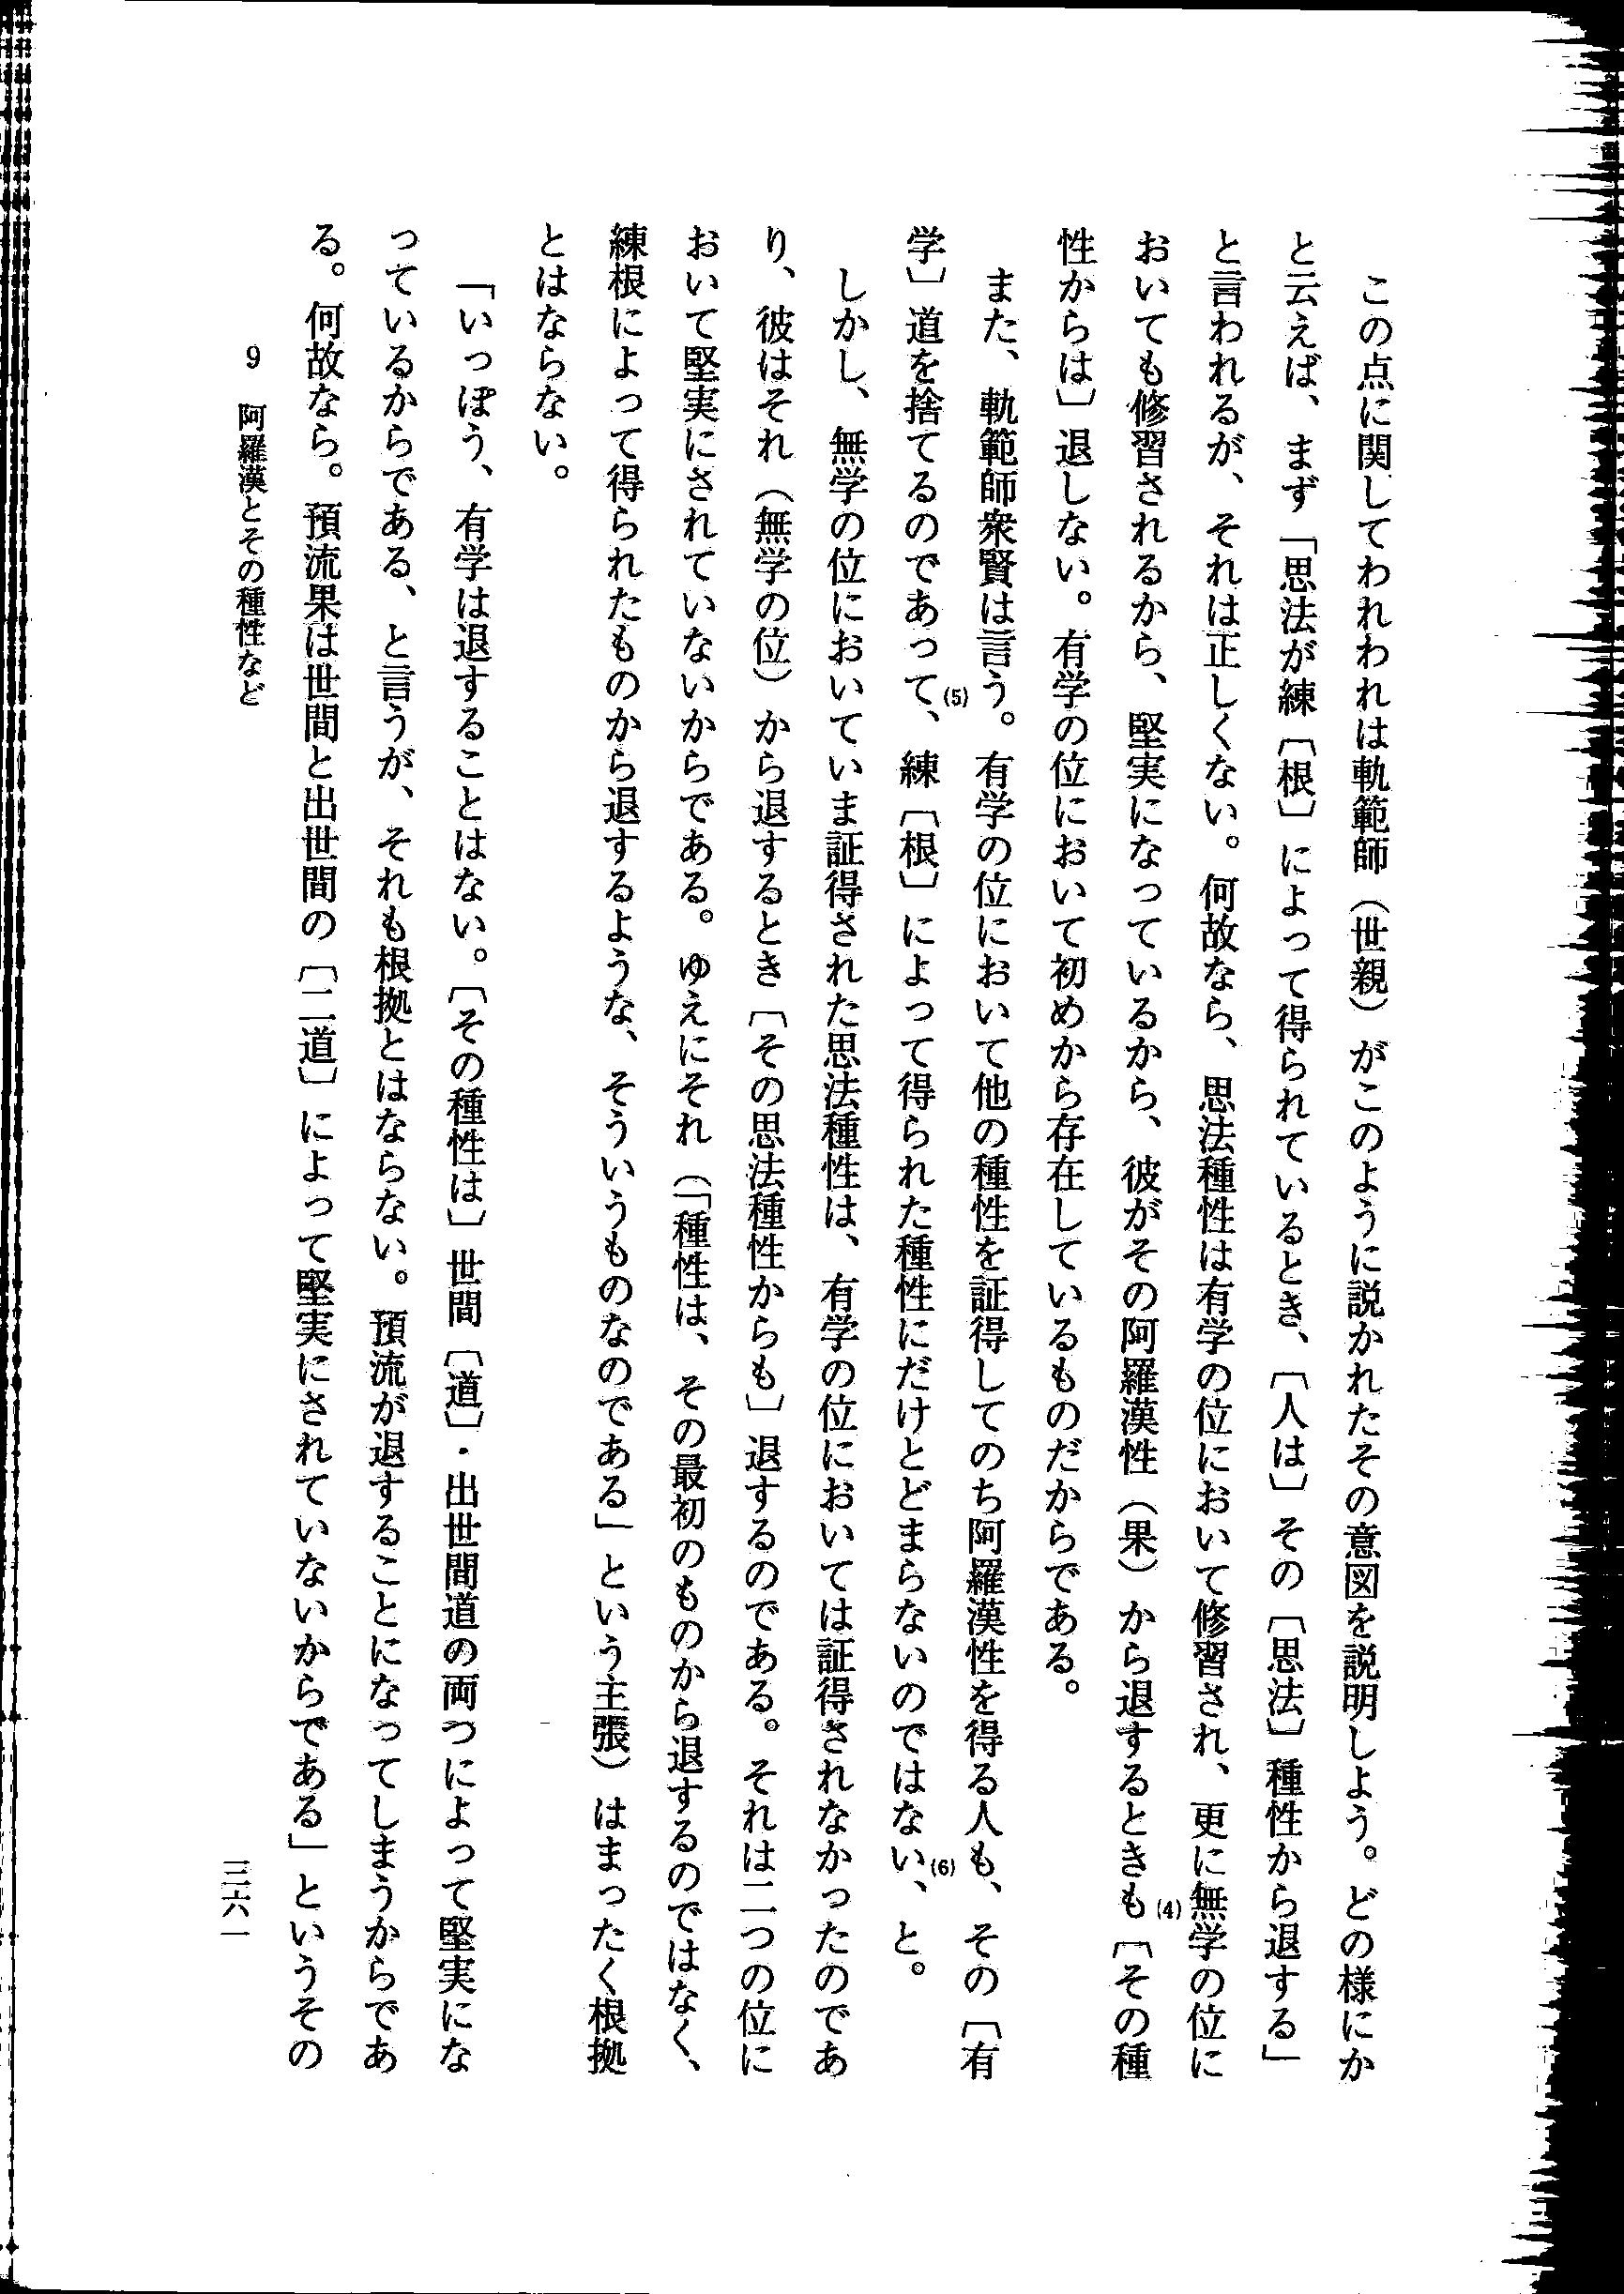 この点に関してわれわれは軌範師（世親）がこのように説かれたその意図を説明しよう。どの様にか
と云えば、まず「思法が練〔根〕によって得られているとき、〔人は〕その〔思法〕種性から退する」
と言われるが、それは正しくない。何故なら、思法種性は有学の位において修習され、更に無学の位に
おいても修習されるから、堅実になっているから、彼がその阿羅漢性（果）から退するときも(4)〔その種
性からは〕退しない。有学の位において初めから存在しているものだからである。
また、軌範師衆賢は言う。有学の位において他の種性を証得してのち阿羅漢性を得る人も、その〔有
学〕道を捨てるのであって、(5)練〔根〕によって得られた種性にだけとどまらないのではない、(6)と。
しかし、無学の位においていま証得された思法種性は、有学の位においては証得されなかったのであ
り、彼はそれ（無学の位）から退するとき〔その思法種性からも〕退するのである。それは二つの位に
おいて堅実にされていないからである。ゆえにそれ（「種性は、その最初のものから退するのではなく、
練根によって得られたものから退するような、そういうものなのである」という主張）はまったく根拠
とはならない。
「いっぽう、有学は退することはない。〔その種性は〕世間〔道〕・出世間道の両つによって堅実にな
っているからである、と言うが、それも根拠とはならない。預流が退することになってしまうからであ
る。何故なら。預流果は世間と出世間の〔二道〕によって堅実にされていないからである」というその
9　阿羅漢とその種性など
三六一